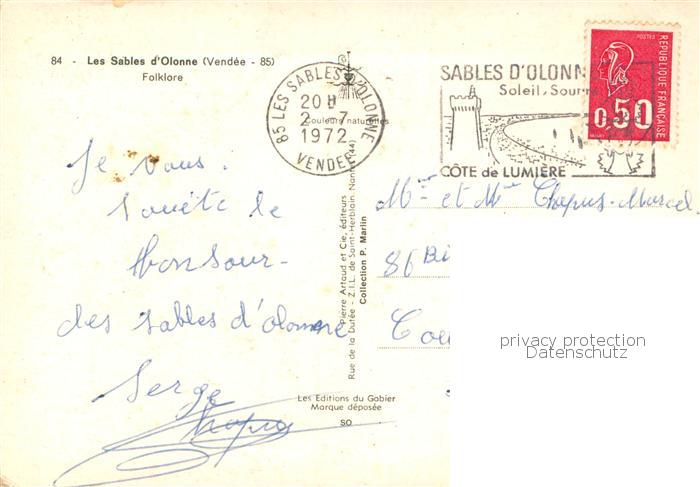 84 - Les Sables d'Olonne (Vendée - 85)
Folklore
85 LES SABLES D'OLONNE
20H
2-7
1972
VENDEE
Couleurs naturelles
SABLES D'OLONN
Soleil, Sour
CÔTE de LUMIÈRE
POSTES
REPUBLIQUE FRANÇAISE
0,50
Je vous
souete le
Bonsour-
des sables d'olonne
Serge
Pierre Artaud et Cie, éditeurs
Rue de la Durée - Z.I.L. de Saint-Herblain. Nantes (44)
Collection P. Marlin
Les Editions du Gabier
Marque déposée
SO
Mme et Mr Chapus-Marcel
86 Bi
Cou
privacy protection
Datenschutz